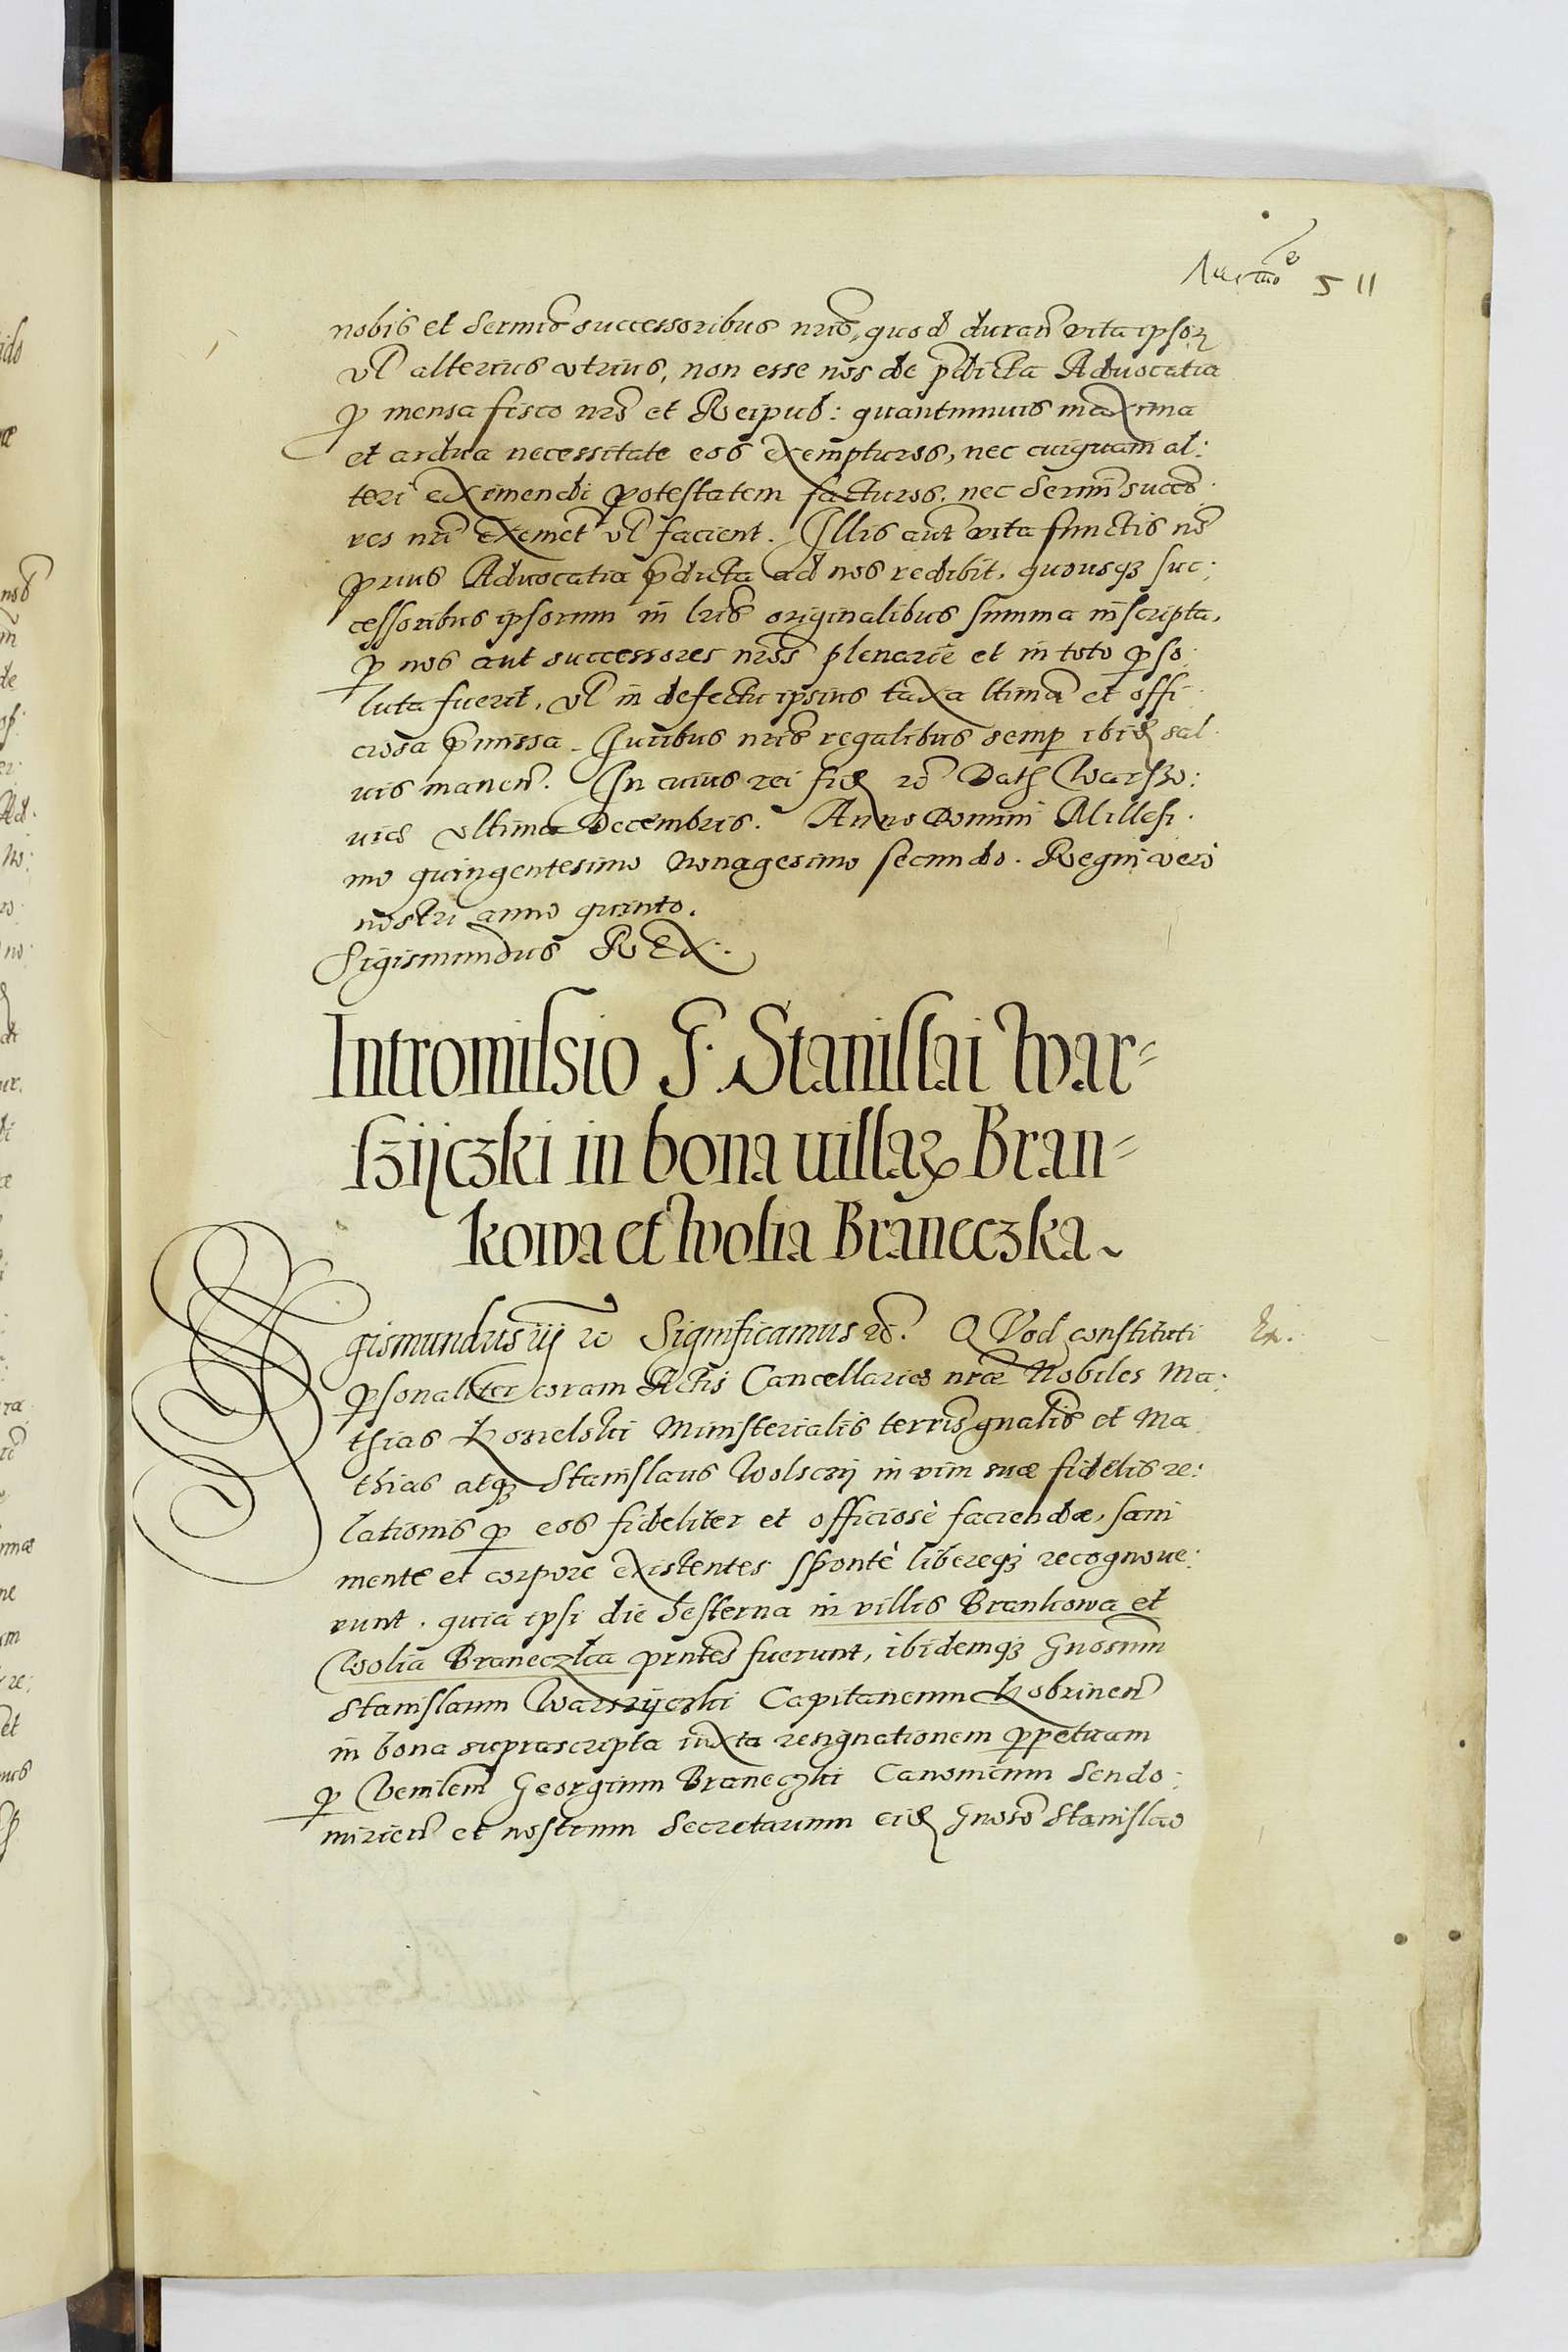 511
nobis et Sermis successoribus nris, quod duran vita ipsoꝝ
vl alterius utrius, non esse nos de pdicta Advocatia
ꝑ mensa fisco nro et Reipub: quantumuis maxima
et ardua necessitate eos exempturos, nec cuiquam al:
teri eximendi potestatem facturos, nec Sermi succes
res nri exement vl facient. Illis aut vita functis nō
prius Advocatia pdicta ad nos redibit, quousqꝫ suc:
cessoribus ipsorum in lris originalibus summa inscripta,
ꝑ nos aut successores nros plenarie et in toto ꝑso:
luta fuerit, vl in defectu ipsius taxa ltima et offi
ciosa pmissa. Iuribus nris regalibus semp ibid sal
uis manen. In cuius rei fid rc Dat Warszo:
uiæ vltima Decembris. Anno Domini Millesi.
mo quingentesimo Nonagesimo secundo. Regni vero
nostri anno quinto.
Sigismundus REX.
Intromissio G. Stanislai War=
szijczki in bona uillaꝝ Bran=
kowa et Wolia Braneczka
Sigismundus iij rc Significamus rc. QVod constituti
ꝑsonaliter coram Actis Cancellariæ nræ Nobiles Ma:
thias Konielski Ministerialis terris gnalis et Ma
thias atqꝫ Stanislaus Wolsczij in vim suæ fidelis re:
lationis ꝑ eos fideliter et officiosè faciendæ, sani
mente et corpore existentes spontè libereqꝫ recognoue:
runt, quia ipsi die hesterna in villis Brankowa et
Wolia Braneczka pntes fuerunt, ibidemqꝫ Gnosum
Stanislaum Warszijczki Capitaneum Kobrinen
in bona suprascripta iuxta resignationem ꝑpetuam
ꝑ Venlem Georgium Braneczki Canonicum Sendo:
mirien et nostrum Secretarium eid Gnoso Stanislao